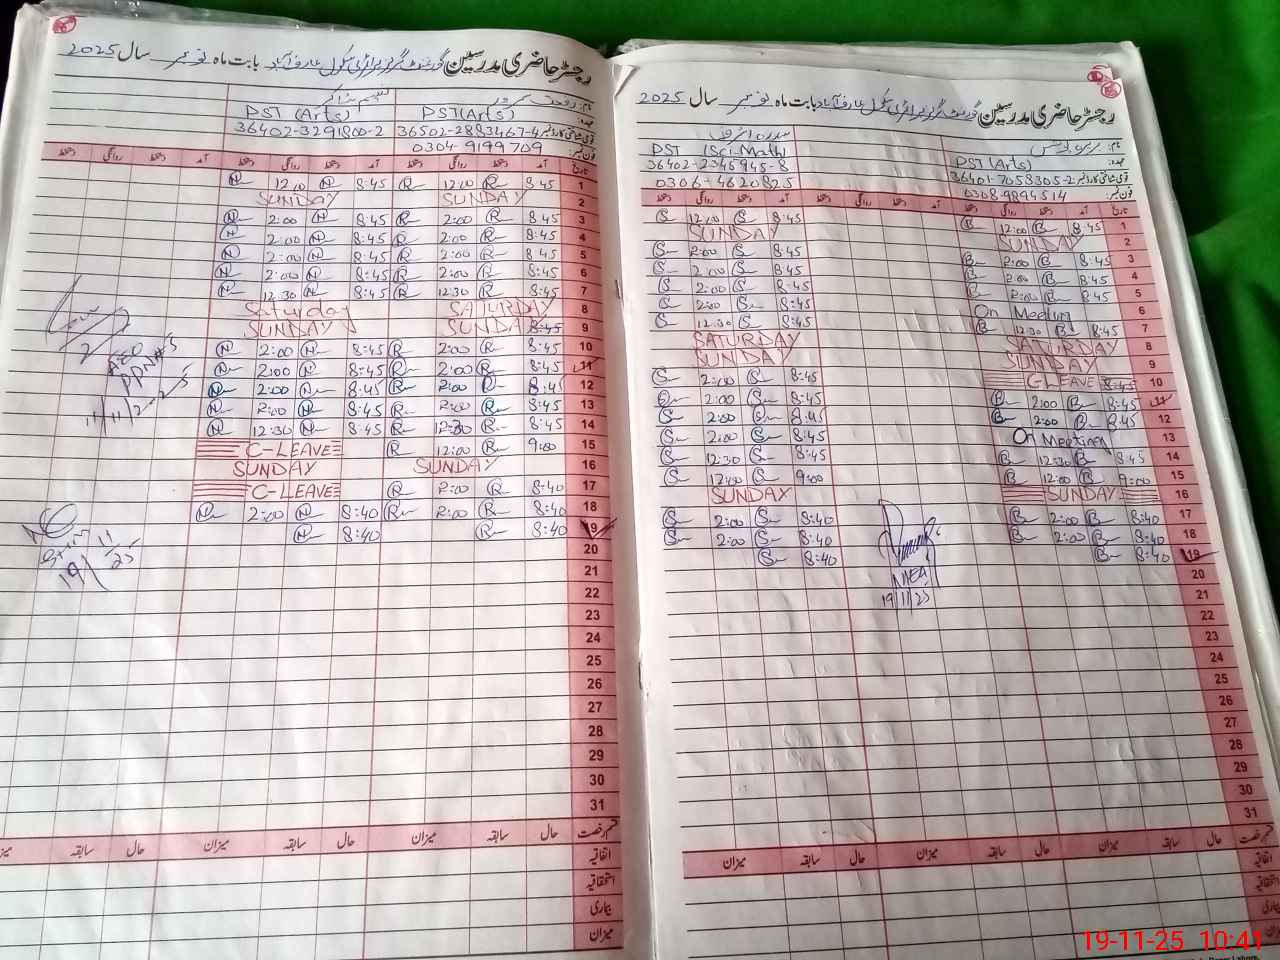 رجسٹر حاضری مدرسین گورنمنٹ گرلز پرائمری سکول عارف آباد بابت ماہ نومبر سال 2025
نام:
عہدہ: DST(Arts) DST (Arts)
قومی شناختی کارڈ نمبر 36502-2883467-4 36402-3291800-2
فون نمبر: 0304-9199709
تاریخ آمد دستخط روانگی دستخط آمد دستخط روانگی دستخط آمد دستخط روانگی دستخط
1 8:45 R 12:00 R 8:45 N 12:00 N
2 SUNDAY SUNDAY
3 8:45 R 2:00 R 8:45 N 2:00 N
4 8:45 R 2:00 R 8:45 N 2:00 N
5 8:45 R 2:00 R 8:45 N 2:00 N
6 8:45 R 2:00 R 8:45 N 2:00 N
7 8:45 R 12:30 R 8:45 N 12:30 N
8 SATURDAY Saturday
9 8:45 SUNDAY SUNDAY
10 8:45 R 2:00 R 8:45 N 2:00 N
11 8:45 R 2:00 R 8:45 N 2:00 N
12 8:45 R 2:00 R 8:45 N 2:00 N
13 8:45 R 2:00 R 8:45 N 2:00 N
14 8:45 R 12:30 R 8:45 N 12:30 N
15 9:00 R 12:00 R C-LEAVE
16 SUNDAY SUNDAY
17 8:40 R 2:00 R C-LEAVE
18 8:40 R 2:00 R 8:40 N 2:00 N
19 8:40 R 8:40 N
20
21
22
23
24
25
26
27
28
29
30
31
قسم رخصت حال سابقہ میزان حال سابقہ میزان حال سابقہ میزان
اتفاقیہ
استحقاقیہ
بیماری
میزان
AEO
11/11/2025
19/11/25
رجسٹر حاضری مدرسین گورنمنٹ گرلز پرائمری سکول عارف آباد بابت ماہ نومبر سال 2025
نام:
عہدہ: PST (Arts) PST (Sci-Math)
قومی شناختی کارڈ نمبر 36401-7053305-2 36402-2345945-8
فون نمبر: 0308-9894514 0306-4620825
تاریخ آمد دستخط روانگی دستخط آمد دستخط روانگی دستخط آمد دستخط روانگی دستخط
1 8:45 B 12:00 B 8:45 S 12:00 S
2 SUNDAY SUNDAY
3 8:45 B 2:00 B 8:45 S 2:00 S
4 8:45 B 2:00 B 8:45 S 2:00 S
5 8:45 B 2:00 B 8:45 S 2:00 S
6 On Meeting 8:45 2:00 S
7 8:45 B 12:30 B 8:45 S 12:30 S
8 SATURDAY SATURDAY
9 SUNDAY SUNDAY
10 8:45 C-LEAVE 8:45 S 2:00 S
11 8:45 B 2:00 B 8:45 S 2:00 S
12 8:45 B 2:00 B 8:45 S 2:00 S
13 On Meeting 8:45 S 2:00 S
14 8:45 B 12:30 B 8:45 S 12:30 S
15 9:00 B 12:00 B 9:00 S 12:00 S
16 SUNDAY SUNDAY
17 8:40 B 2:00 B 8:40 S 2:00 S
18 8:40 B 2:00 B 8:40 S 2:00 S
19 8:40 B 8:40 S
20
21
22
23
24
25
26
27
28
29
30
31
MEA
19/11/25
قسم رخصت حال سابقہ میزان حال سابقہ میزان حال سابقہ میزان
اتفاقیہ
استحقاقیہ
بیماری
میزان
19-11-25 10:41